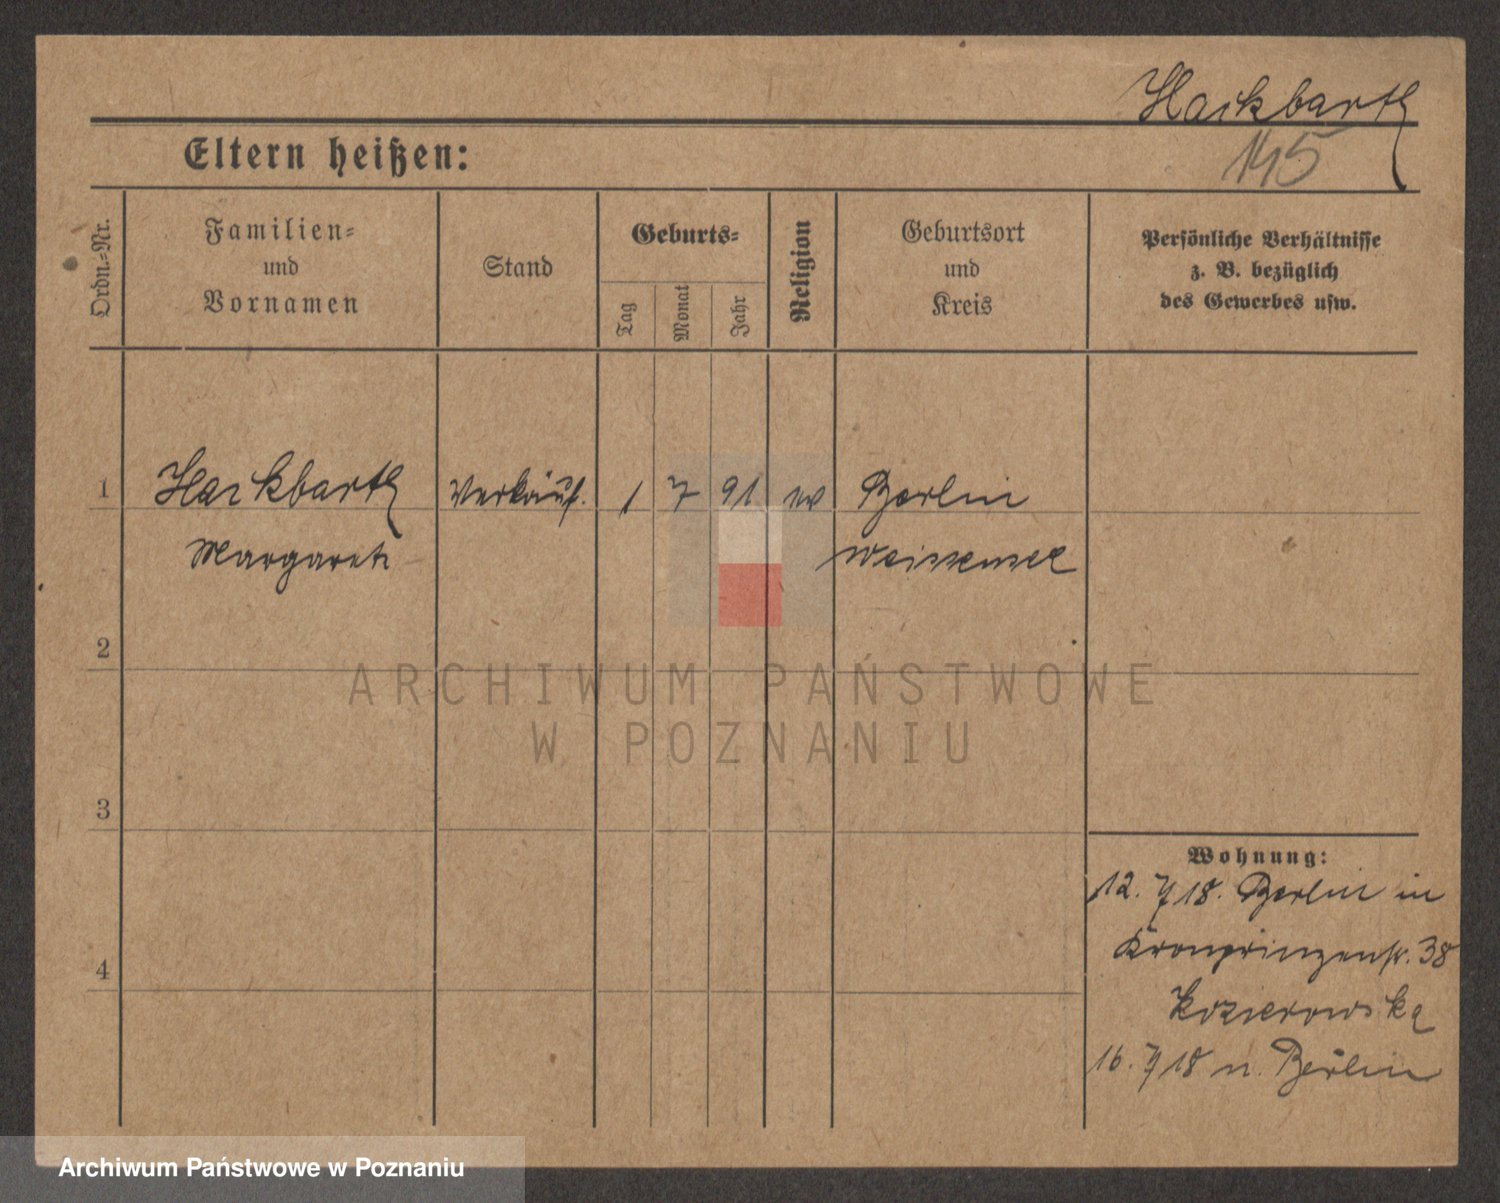 Hackbarth
145
Eltern heißen:
Ordn.-Nr.
Familien-
und
Vornamen
Stand
Geburts-
Tag
Monat
Jahr
Religion
Geburtsort
und
Kreis
Persönliche Verhältnisse
z. B. bezüglich
des Gewerbes usw.
1 Hackbarth Verkäuf. 1 7 91 ev Berlin
Margarete Weissensee
2
3
4
Wohnung:
12. 7 18. Berlin in
Kronprinzenstr. 38
Kozierowska
16. 7 18 n. Berlin
ARCHIWUM PAŃSTWOWE
W POZNANIU
Archiwum Państwowe w Poznaniu